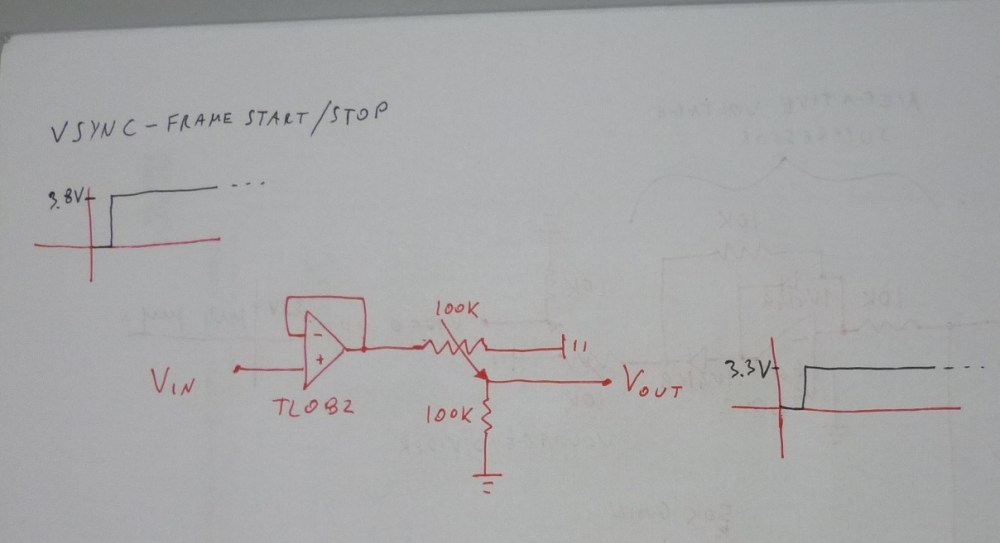 VSYNC - FRAME START/STOP
3.8V
100K
3.3V
VIN
VOUT
TL082
100K